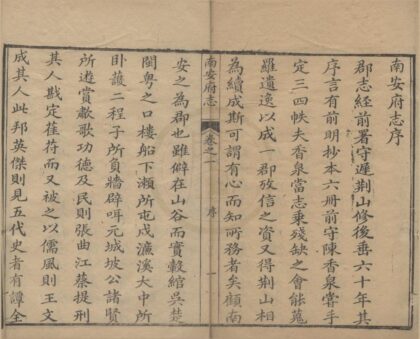 南安府志序
郡志經前署守遲荆山修後垂六十年其
序言有前明抄本六冊前守陳香泉嘗手
定三四帙夫香泉當志乘殘缺之會能蒐
羅遺逸以成一郡攷信之資又得荆山相
為續成斯可謂有心而知所務者矣顧南
南安府志
卷之一
序
一
安之為郡也雖僻在山谷而實轂綰吳楚
閩粤之口樓船下瀬所屯戍濂溪大中所
卧護二程子所負牆辟咡元城坡公諸賢
所遊賞歗歌功德及民則張曲江蔡提刑
其人戡定萑苻而又被之以儒風則王文
成其人此邦英傑則見五代史者有譚全